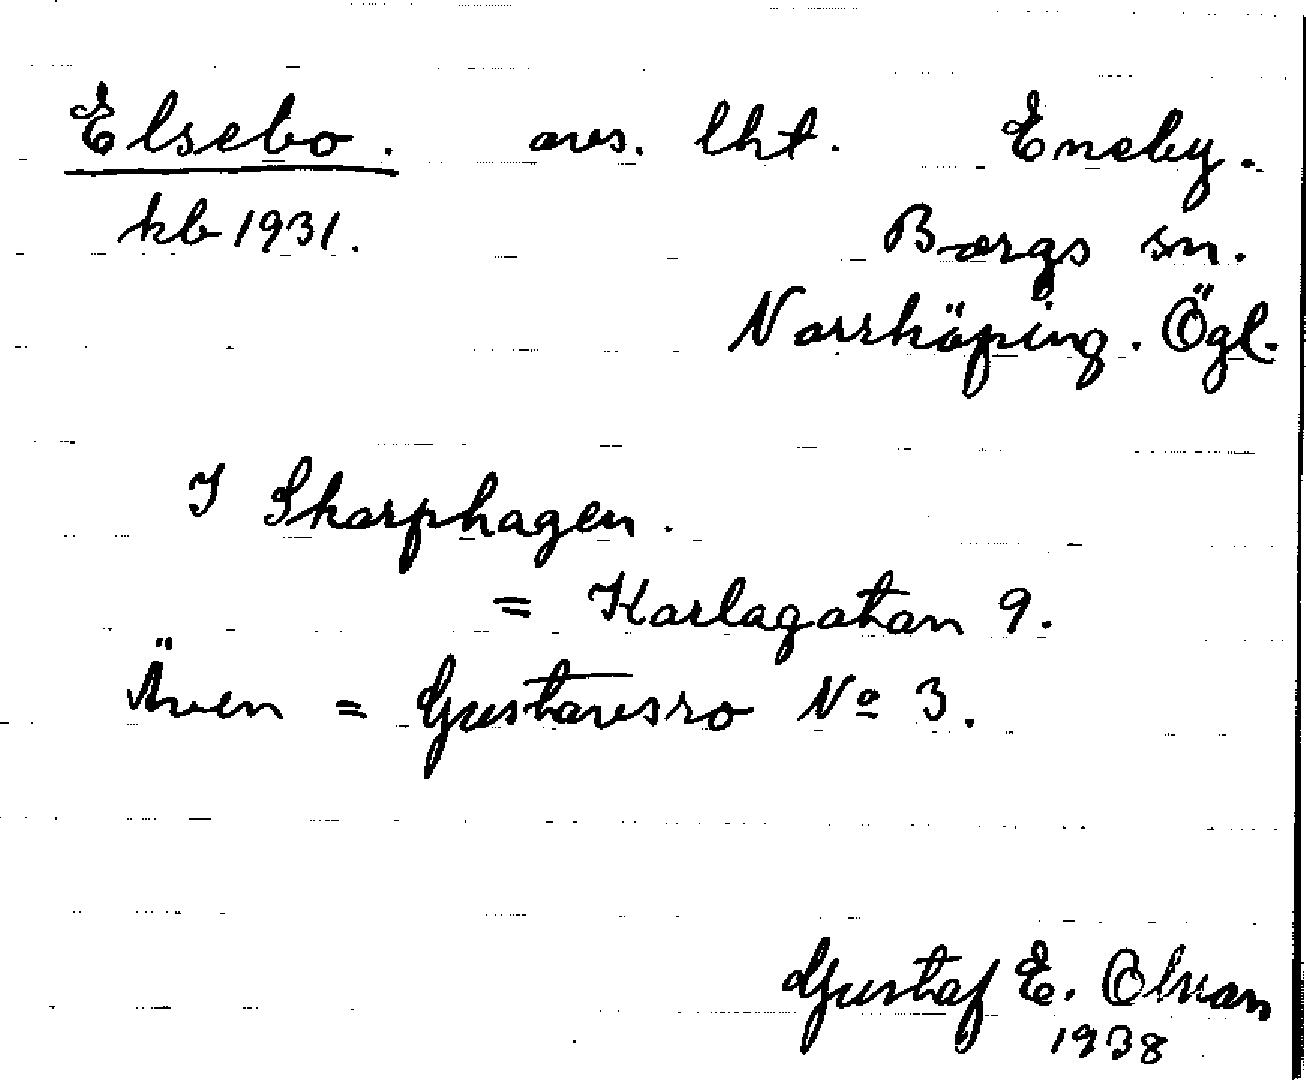 Elsebo. avs. lht. Eneby.
kb 1931. Borgs sn.
Norrköping. Ögl.
I Skarphagen.
= Karlagatan 9.
Även = Gustavsro Nº 3.
Gustaf E. Olsson
1938